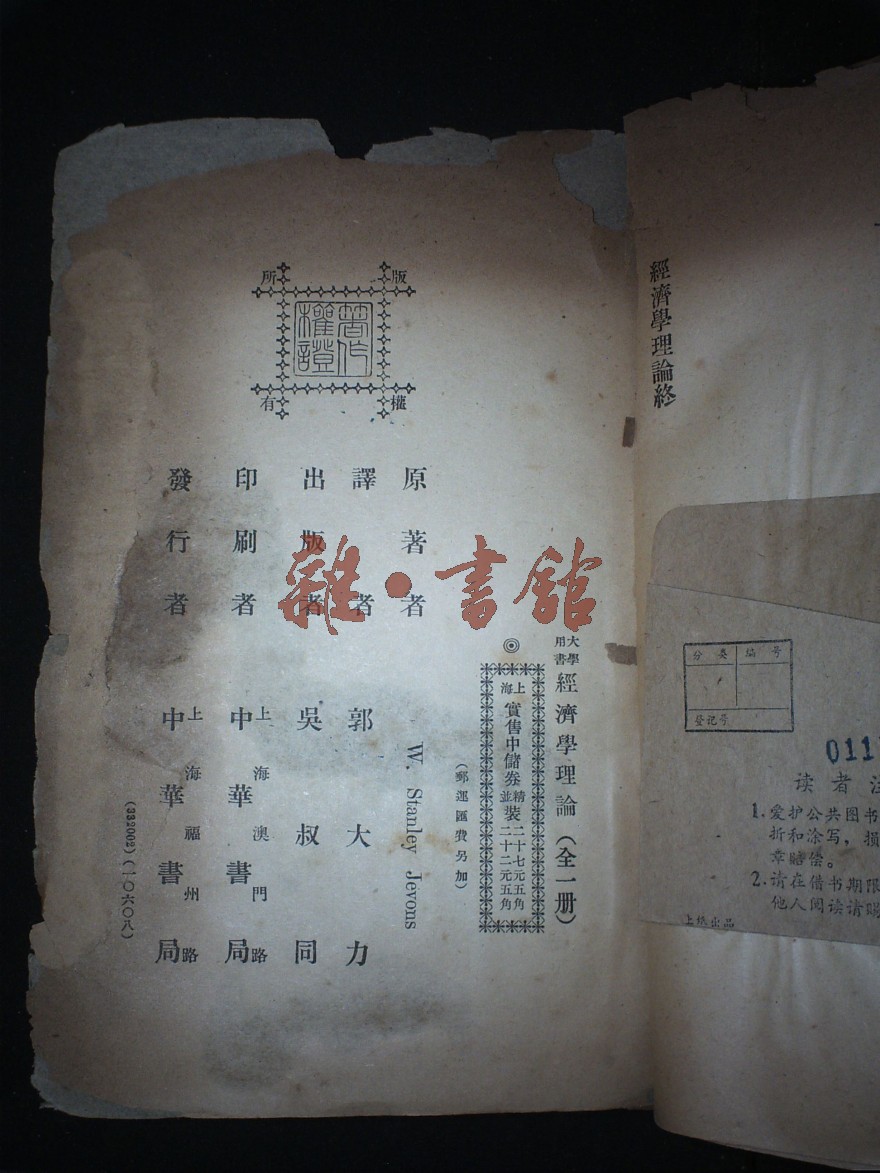 經濟學理論終
分类 編号
登记号
011
读者注
1.爱护公共图书
折和涂写，损
章賠偿。
2.请在借书期限
他人阅读请賜
上紙出品
大學用書 經濟學理論（全一册）
◎
上海 實售中儲券 精裝二十七元五角 並裝二十二元五角
（郵運匯費另加）
原著者 W. Stanley Jevons
譯者 郭大力
出版者 吳叔同
印刷者 上海澳門路 中華書局
發行者 上海福州路 中華書局
(332002)(一〇六〇八)
版權所有
著作權證
雜·書館